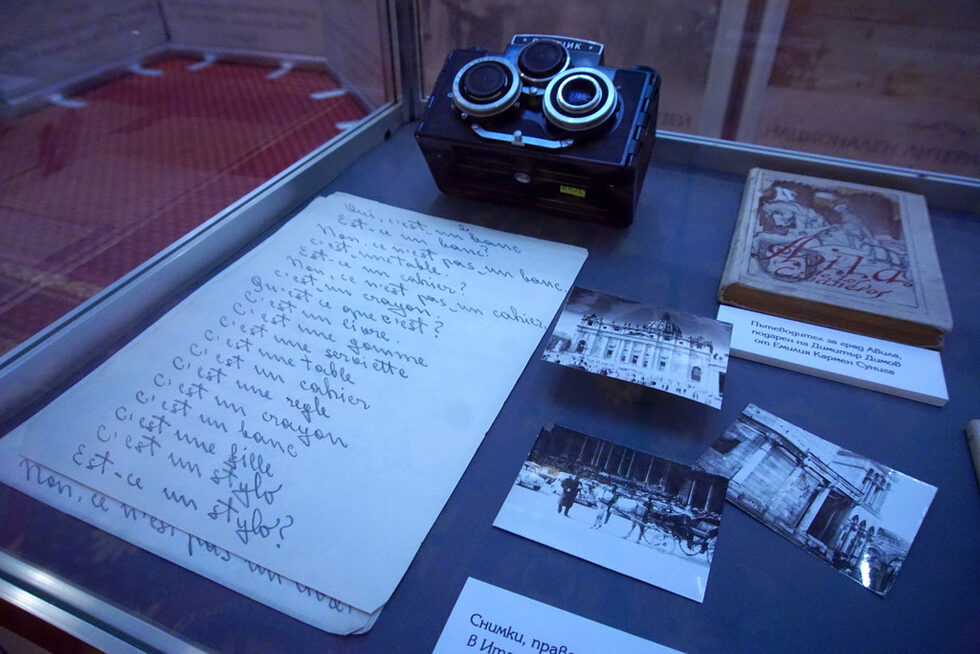 Oui, c'est un banc
Est-ce un banc?
Non, ce n'est pas un banc,
c'est une table.
Est-ce un cahier?
Non, ce n'est pas un cahier,
c'est un crayon.
Qu'est-ce que c'est?
C'est un livre.
C'est une gomme
C'est une serviette
C'est une table
C'est un cahier
C'est une règle
C'est un crayon
C'est un banc
C'est une fille
C'est un stylo
Est-ce un stylo?
Non, ce n'est pas un
Avila
Пътеводител за град Авила,
подарен на Димитър Димов
от Емилия Кармен Сунига
Снимки,
В
НАЦИОНАЛЕН